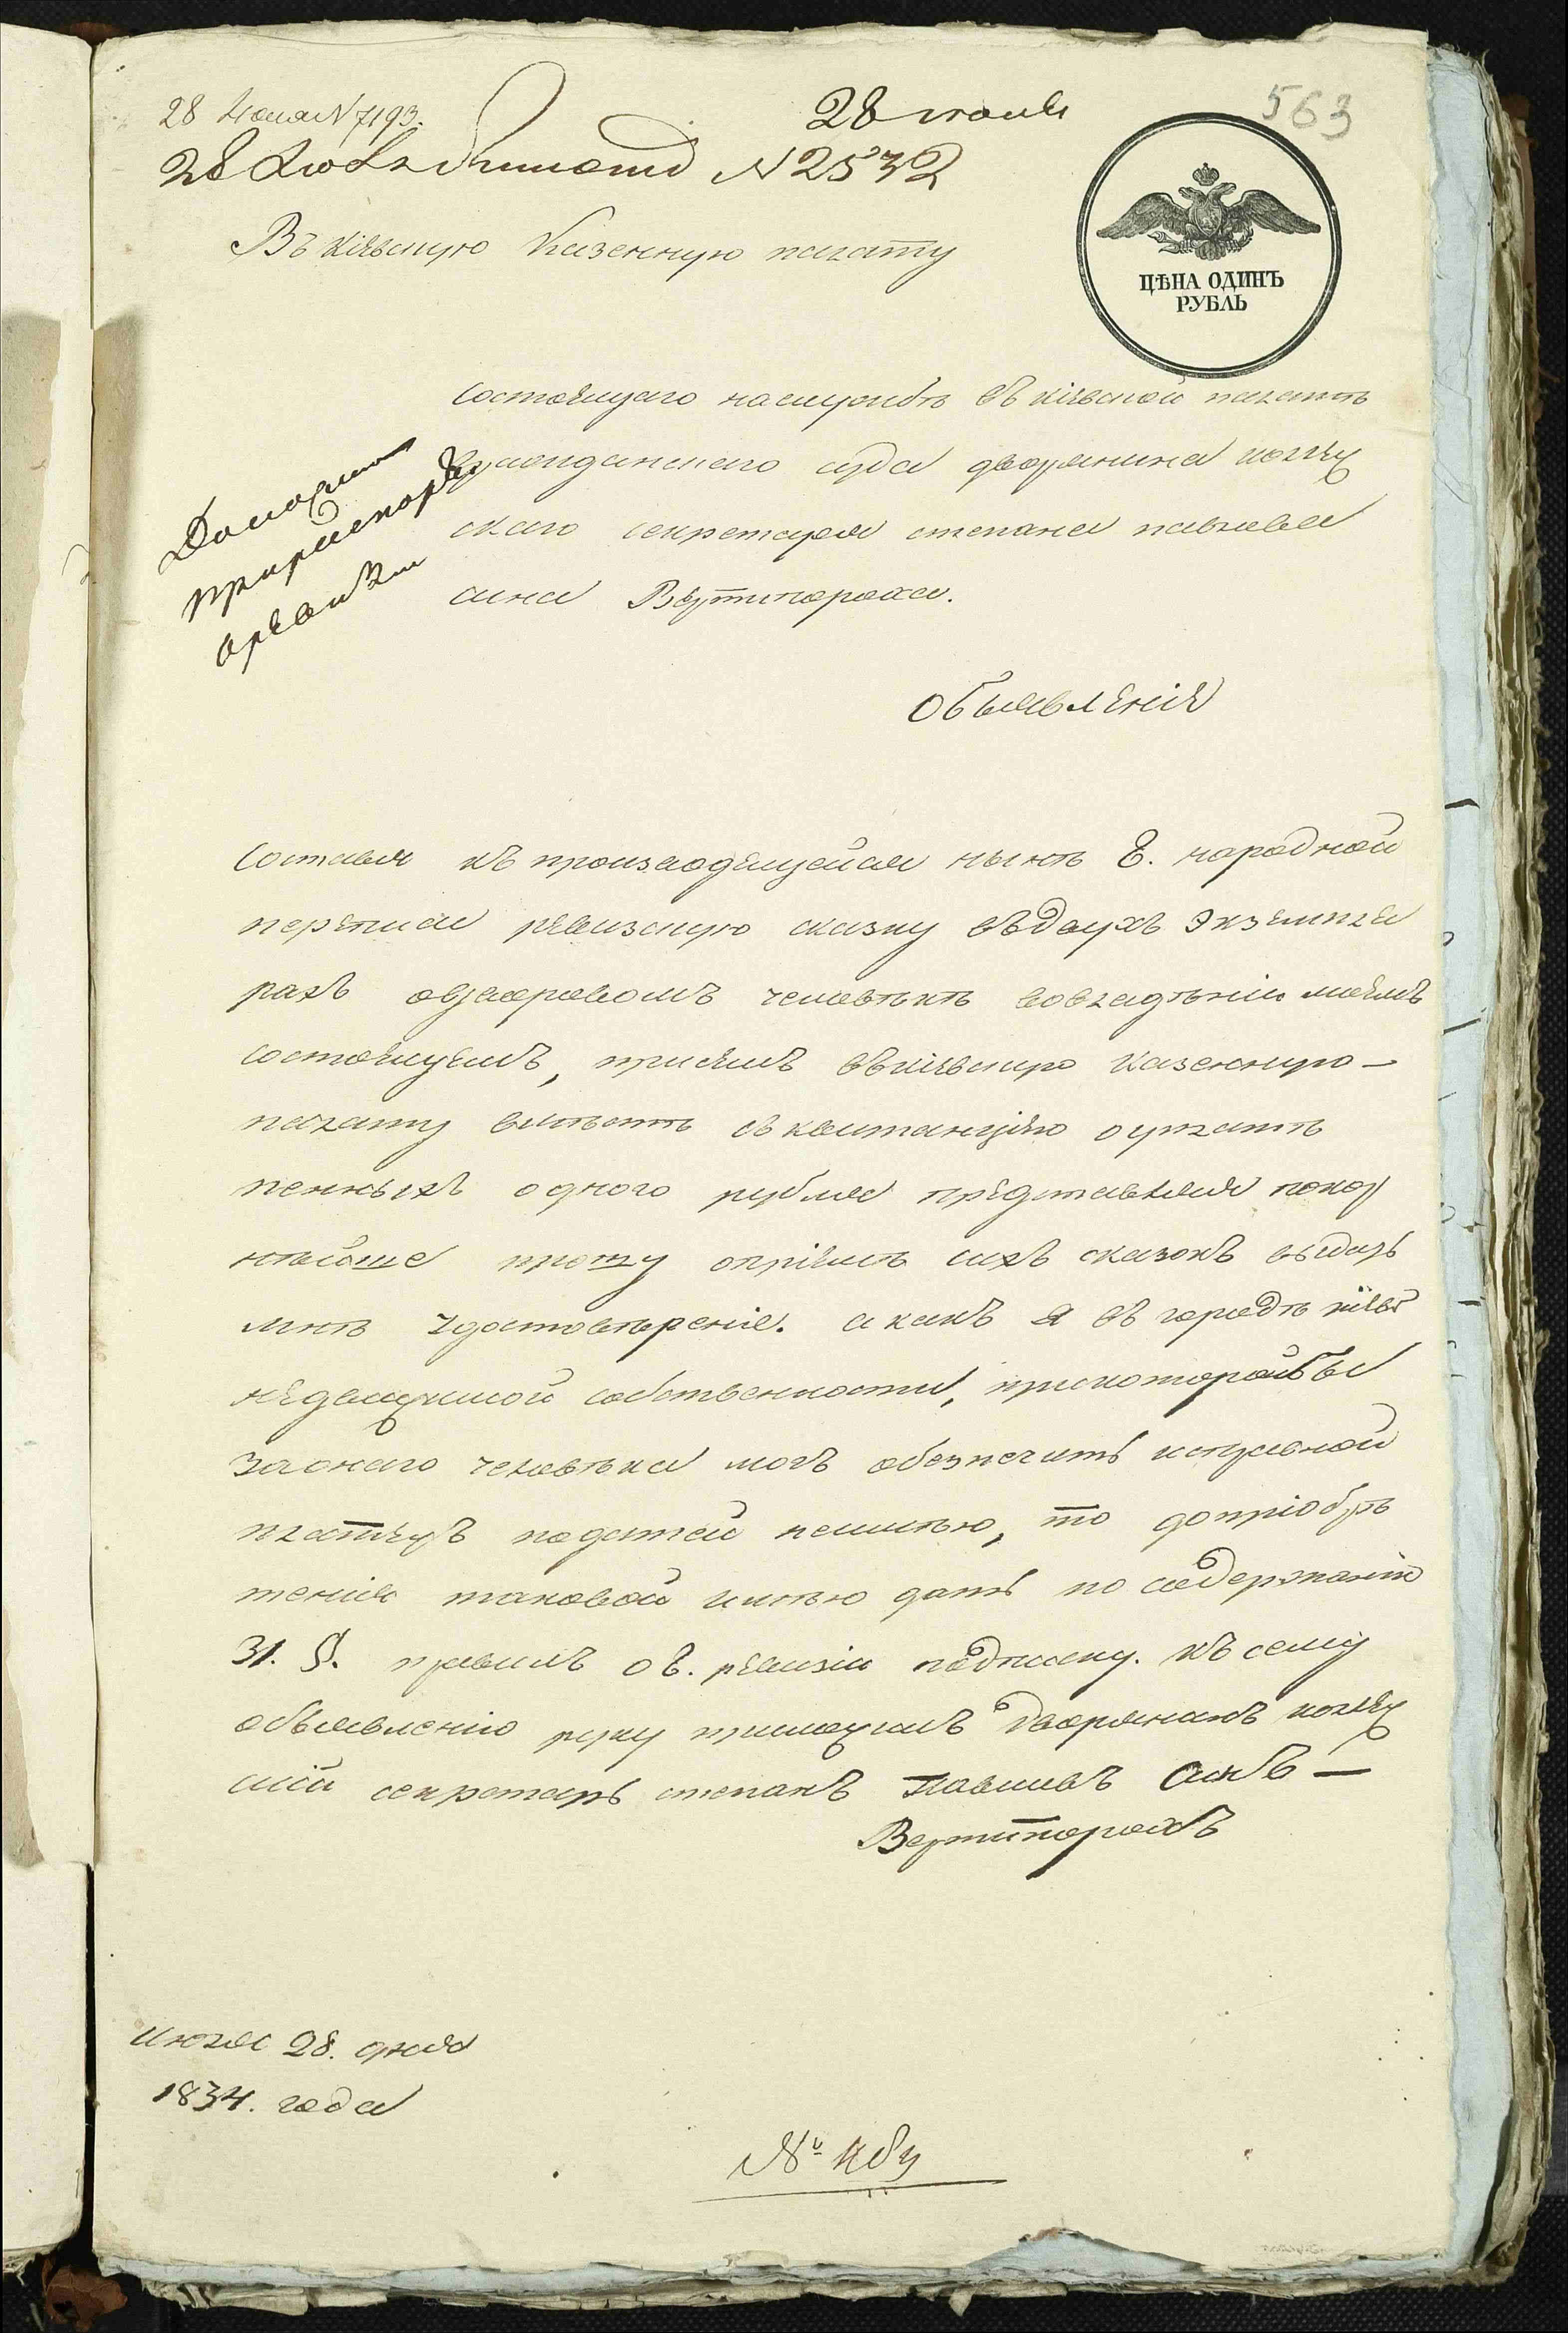 28 Июля N 7193.
28 июля
563
28 N 2532
Въ кіевскую Казенную палату
ЦѢНА ОДИНЪ
РУБЛЬ
состоящаго наслужбѣ въ кіевской палатѣ
гражданскаго суда дворянина коллеж
скаго секретаря степана павлова
сина Вертипороха.
Доложить
при
о ревизіи
Объявленіе
Составя къ производящейся нынѣ 8. народной
переписи ревизскую сказку въ двухъ экземпля
рахъ одворовомъ человѣкѣ вовладѣніи моемъ
состоящемъ, при семъ въ кіевскую казенную —
палату вмѣстѣ съ квитанціею о уплатѣ
пенныхъ одного рубля представляя покор
нѣйше прошу опріемѣ сихъ сказокъ выдать
мнѣ удостовѣреніе. а какъ я въ городѣ кіевѣ
недвижимой собственности, прикоторойбы
заонаго человѣка могъ обезпечить исправной
платежъ податей неимѣю, то допріобрѣ
тенія таковой имѣю дать по содержанію
31. §. правилъ о 8. ревизіи подписку. Къ сему
объявленію руку приложилъ дворянинъ коллеж
скій секретарь степанъ Павловъ синъ —
Вертипорохъ
Июля 28. дня
1834. года
№